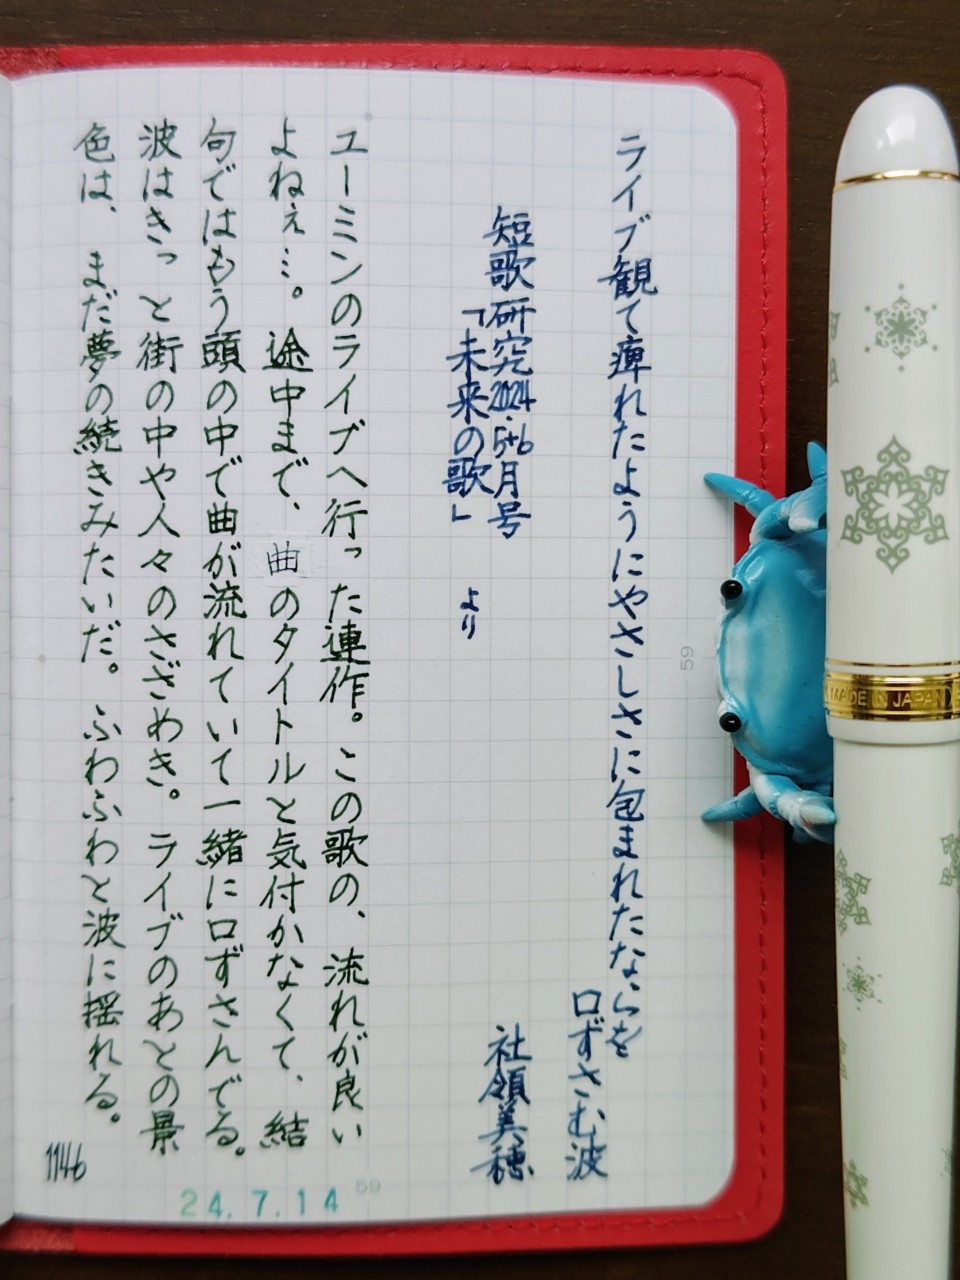 ライブ観て痺れたようにやさしさに包まれたならを
口ずさむ波
社領美穂
短歌研究2024.5+6月号
「未来の歌」
より
ユーミンのライブへ行った連作。この歌の、流れが良い
よねぇ…。途中まで、曲のタイトルと気付かなくて、結
句ではもう頭の中で曲が流れていて一緒に口ずさんでる。
波はきっと街の中や人々のさざめき。ライブのあとの景
色は、まだ夢の続きみたいだ。ふわふわと波に揺れる。
1146
24.7.14
59
59
MADE IN JAPAN